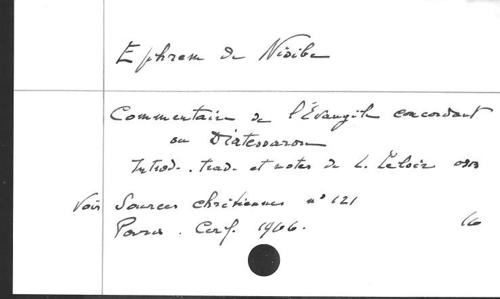 Ephrem de Nisibe
Commentaire de l'Évangile concordant
ou Diatessaron
Introd. trad. et notes de L. Leloir OSB
Voir Sources chrétiennes n° 121
Paris. Cerf. 1966. 16